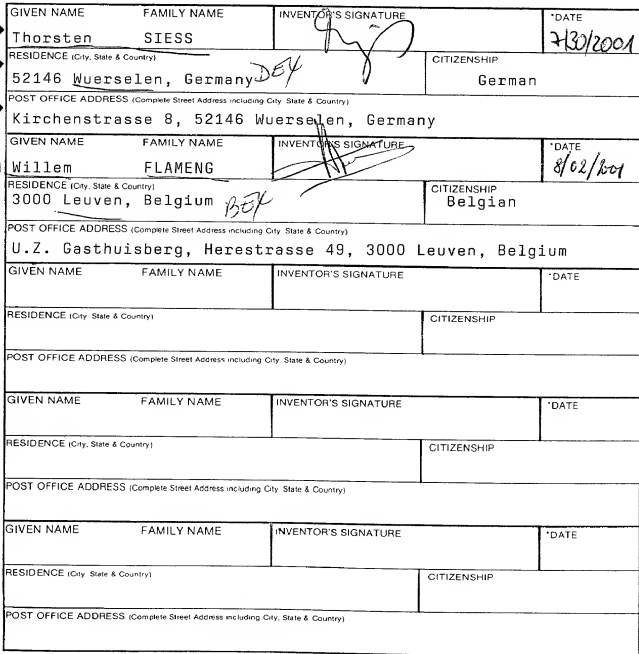 GIVEN NAME FAMILY NAME INVENTOR'S SIGNATURE *DATE
Thorsten SIESS 7/30/2001
RESIDENCE (City, State & Country) CITIZENSHIP
52146 Wuerselen, Germany DEX German
POST OFFICE ADDRESS (Complete Street Address including City State & Country)
Kirchenstrasse 8, 52146 Wuerselen, Germany
GIVEN NAME FAMILY NAME INVENTOR'S SIGNATURE *DATE
Willem FLAMENG 8/02/2001
RESIDENCE (City, State & Country) CITIZENSHIP
3000 Leuven, Belgium BEX Belgian
POST OFFICE ADDRESS (Complete Street Address including City State & Country)
U.Z. Gasthuisberg, Herestrasse 49, 3000 Leuven, Belgium
GIVEN NAME FAMILY NAME INVENTOR'S SIGNATURE *DATE
RESIDENCE (City State & Country) CITIZENSHIP
POST OFFICE ADDRESS (Complete Street Address including City State & Country)
GIVEN NAME FAMILY NAME INVENTOR'S SIGNATURE *DATE
RESIDENCE (City, State & Country) CITIZENSHIP
POST OFFICE ADDRESS (Complete Street Address including City State & Country)
GIVEN NAME FAMILY NAME INVENTOR'S SIGNATURE *DATE
RESIDENCE (City State & Country) CITIZENSHIP
POST OFFICE ADDRESS (Complete Street Address including City, State & Country)